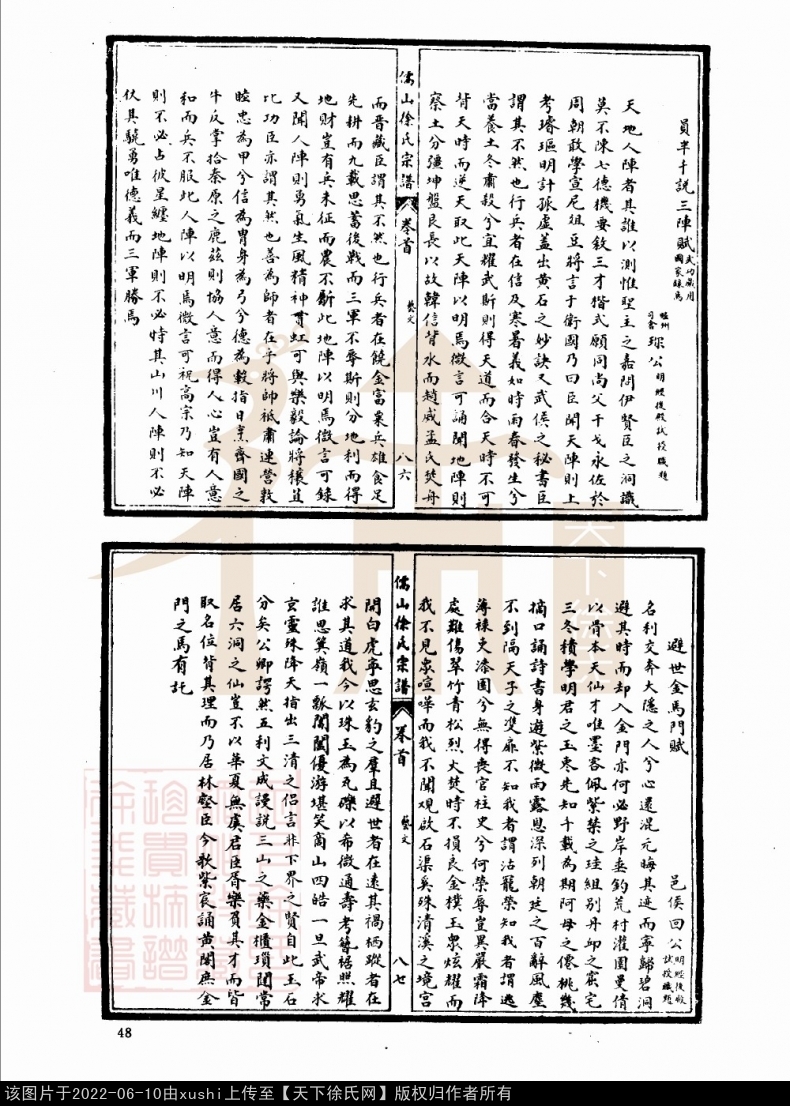 員半千說三陣賦 武功兼用國家緣馬 睦州司倉 琛公 明經後殿試授職題
天地人陣者其誰以測惟聖主之嘉問伊賢臣之洞識
莫不陳七德機要敘三才楷式願同尚父干戈永佐於
周朝敢學宣尼俎豆將言于衛國乃曰臣聞天陣則上
考璿璣明計孤虛蓋出黃石之妙訣又武侯之秘書臣
謂其不然也行兵者在信及寒暑義如時雨春發生兮
當養土冬肅殺兮宜耀武斯則得天道而合天時不可
背天時而逆天取此天陣以明焉微言可誦聞地陣則
察土分強坤盤艮長以故韓信背水而趙威孟氏焚舟
儒山徐氏宗譜 卷首 藝文 八六
而晉藏臣謂其不然也行兵者在饒金富粟兵雄食足
先耕而九載思蓄後戰而三軍不辱斯則分地利而得
地財豈有兵未征而農不斸此地陣以明焉微言可錄
又聞人陣則勇氣生風精神貫虹可與樂毅論將穰苴
比功臣亦謂其然也善為師者在乎將師祗肅連營敦
睦忠為甲兮信為胄身為弓兮德為轂指日烹齊國之
牛反掌拾秦原之鹿茲則協人意而得人心豈有人意
和而兵不服此人陣以明焉微言可祝高宗乃知天陣
則不必占彼星纏地陣則不必恃其山川人陣則不必
伏其驍勇唯德義而三軍勝焉
避世金馬門賦 邑侯回公 明經後殿試授職題
名利交奔大隱之人兮心還混元晦其迹而寧歸碧洞
避其時而却入金門亦何必野岸垂釣荒村灌園曼倩
以骨本天仙才唯墨客佩紫禁之珪組別丹邱之窟宅
三冬積學明君之玉表先知千載為期阿母之僊桃幾
摘口誦詩書身遊紫微雨露恩深列朝廷之百辭風塵
不到隔天子之雙扉不知我者謂沽寵榮知我者謂逃
薄祿吏漆園兮無得喪官柱史兮何榮辱豈異嚴霜降
處難傷翠竹青松烈火焚時不損良金樸玉眾炫耀而
我不見眾喧嘩而我不聞觀啟石渠奚殊清溪之境宮
儒山徐氏宗譜 卷首 藝文 八七
開白虎寧思玄豹之羣且避世者在遠其禍栖蹤者在
求其道我今以珠玉為瓦礫以希微通壽考簪裾照耀
誰思箕嶺一瓢閶闔優游堪笑商山四皓一旦武帝求
玄靈殊降天指出三清之侶言非下界之賢自此玉石
分矣公卿諤然五利文成謾說三山之藥金櫃瓊閣常
居六洞之仙豈不以華夏無虞君臣胥樂負其才而皆
取名位背其理而乃居林壑臣今歌紫宸誦黃閣庶金
門之馬有託
48
该图片于2022-06-10由xushi上传至【天下徐氏网】版权归作者所有